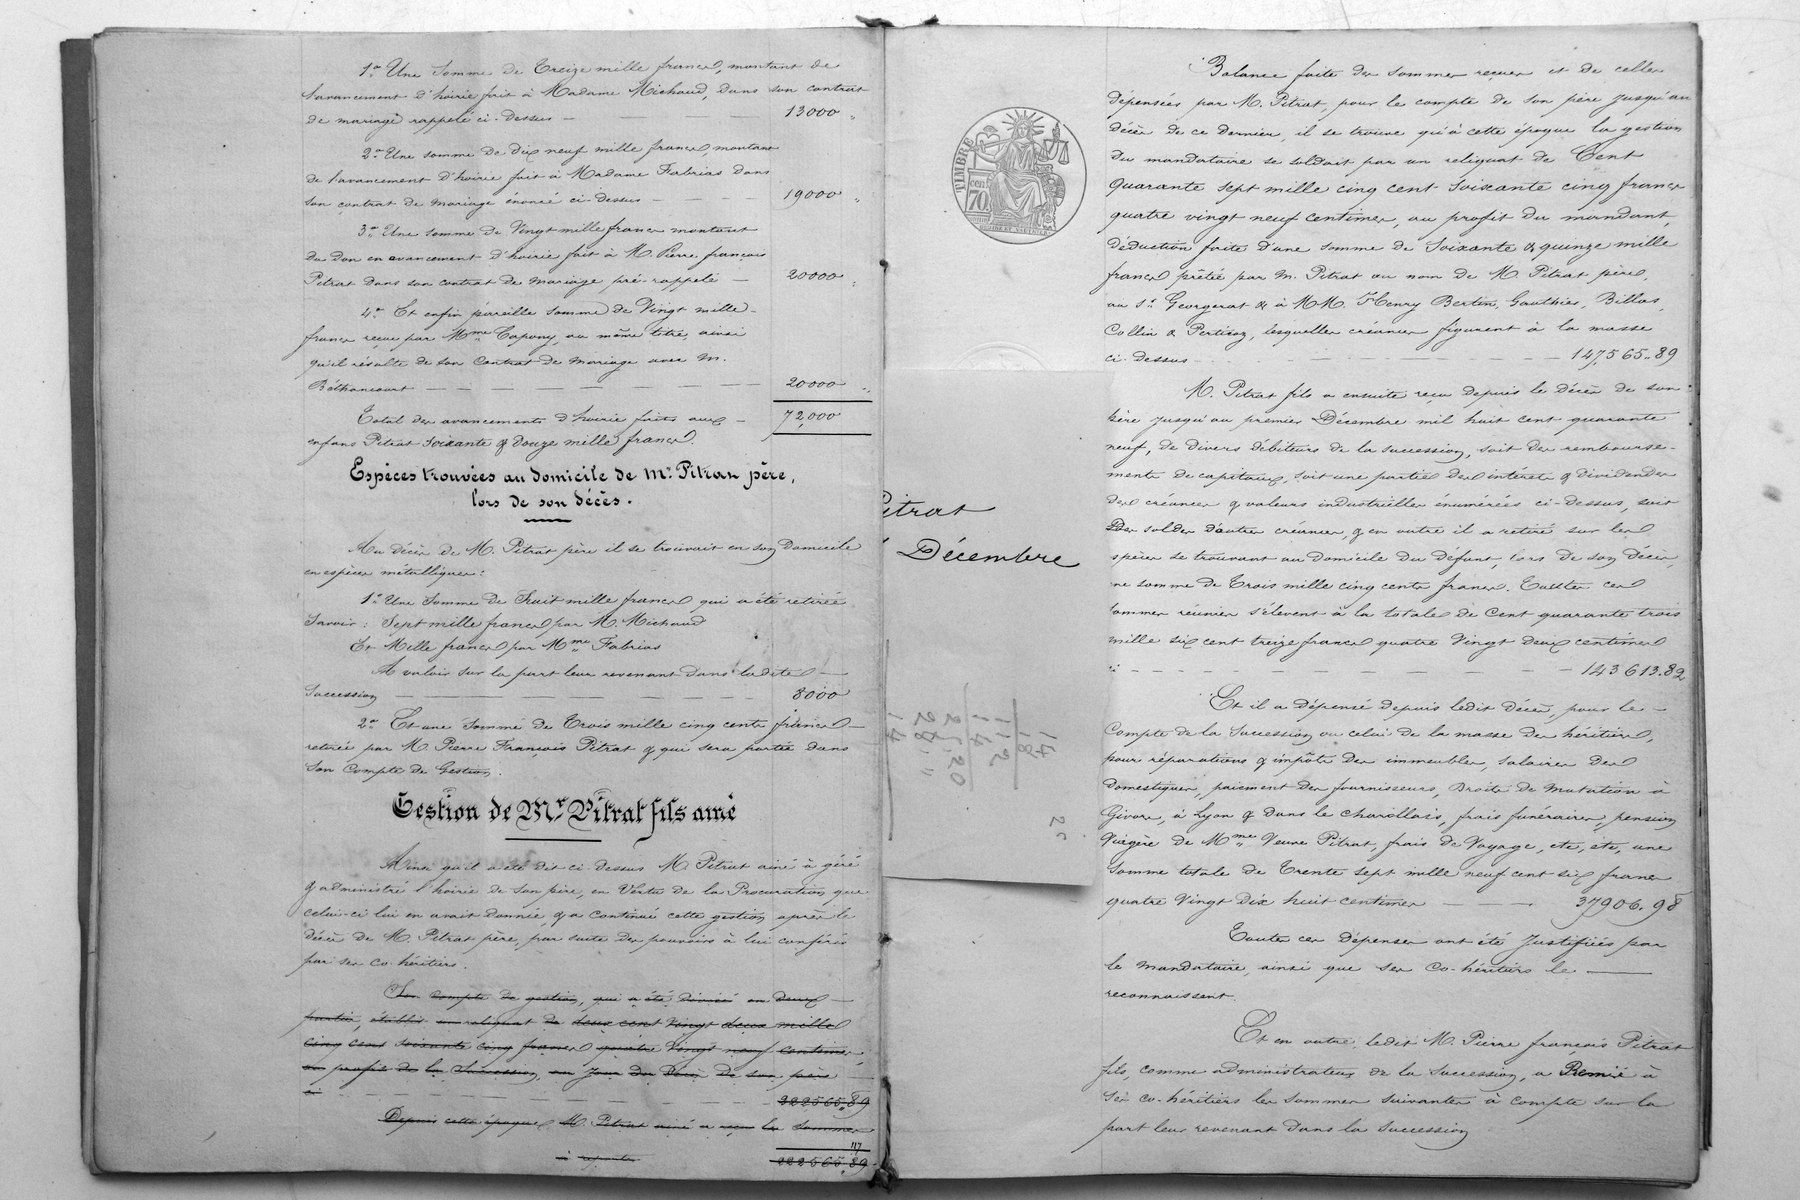 1° Une Somme de Treize mille francs, montant de
l'avancement d'hoirie fait à Madame Michaud, dans son contrat
de mariage rappelé ci-dessus — 13000 "
2° Une somme de dix neuf mille francs, montant
de l'avancement d'hoirie fait à Madame Fabrias dans
son contrat de mariage énoncé ci-dessus — 19000 "
3° Une somme de Vingt mille francs montant
du Don en avancement d'hoirie fait à M. Pierre françois
Pitrat dans son contrat de mariage pré-rappelé — 20000 "
4° Et enfin pareille somme de Vingt mille
francs reçue par Mme Capony, au même titre, ainsi
qu'il résulte de son Contrat de mariage avec M.
Béthancourt — 20000 "
Total des avancements d'hoirie faits aux — 72,000
enfans Pitrat Soixante & Douze mille francs.
Espèces trouvées au domicile de Mr. Pitrat père,
lors de son décès.
Au décès de M. Pitrat père il se trouvait en son Domicile
en espèces métalliques :
1° Une Somme de huit mille francs qui a été retirée
Savoir : Sept mille francs par M. Michaud
Et Mille francs par Mme Fabrias
A valoir sur la part leur revenant dans ladite —
Succession — 8000
2° Et une Somme de Trois mille cinq cents francs —
retirée par M. Pierre François Pitrat & qui sera portée dans
Son Compte de Gestion.
Gestion de Mr. Pitrat fils ainé
Ainsi qu'il a été dit ci-dessus M. Pitrat ainé à géré
& administré l'hoirie de Son père, en Vertu de la Procuration que
celui-ci lui en avait donnée, & a continué cette gestion après le
décès de M. Pitrat père, par suite des pouvoirs à lui conférés
par ses Co-héritiers.
Son compte de gestion, qui a été divisé en deux —
parties, établit un reliquat de deux cent Vingt deux mille
cinq cent soixante cinq francs quatre Vingt neuf centimes,
au profit de la Succession, au jour du Décès de son père —
ci — 222565.89
Depuis cette époque M. Pitrat ainé a reçu les sommes
à reporter 222565.89
TIMBRE
70 cen.
Pitrat
Décembre
14
18
112
14
25.20
28 "
14
20
Balance faite des sommes reçues et de celles
dépensées par M. Pitrat, pour le compte de son père jusqu'au
décès de ce dernier, il se trouve qu'à cette époque la gestion
du mandataire se soldait par un reliquat de Cent
quarante sept mille cinq cent soixante cinq francs
quatre vingt neuf centimes, au profit du mandant,
déduction faite d'une somme de Soixante & quinze mille
francs prêtée par M. Pitrat au nom de M. Pitrat père,
au Sr. Georgerat & à MM. Henry Berton, Gauthier, Billas,
Collin & Pertisoz, lesquelles créances figurent à la masse
ci-dessus — 147,565.89
M. Pitrat fils a ensuite reçu depuis le décès de son
père jusqu'au premier Décembre mil huit cent quarante
neuf, de divers débiteurs de la succession, soit des rembourse-
ments de capitaux, soit une partie des intérêts & dividendes
des créances & valeurs industrielles énumérées ci-dessus, soit
des soldes d'autres créances, & en outre il a retiré sur les
espèces se trouvant au domicile du défunt, lors de son décès,
une somme de Trois mille cinq cents francs. Toutes ces
sommes réunies s'élèvent à la totale de Cent quarante trois
mille six cent treize francs quatre Vingt deux centimes
ci — 143613.82
Et il a dépensé depuis ledit décès, pour le —
Compte de la Succession ou celui de la masse des héritiers,
pour réparations & impôts des immeubles, salaires des
domestiques, paiement des fournisseurs, Droits de Mutation à
Givors, à Lyon & dans le Charollais, frais funéraires, pension
Viagère de Mme Veuve Pitrat, frais de Voyage, etc, etc, une
Somme totale de Trente sept mille neuf cent six francs
quatre Vingt Dix huit centimes — 37906.98
Toutes ces dépenses ont été justifiées par
le mandataire, ainsi que ses Co-héritiers le —
reconnaissent.
Et en outre, ledit M. Pierre françois Pitrat
fils, comme administrateur de la Succession, a Remis à
Ses co-héritiers les sommes suivantes à compte sur la
part leur revenant dans la Succession